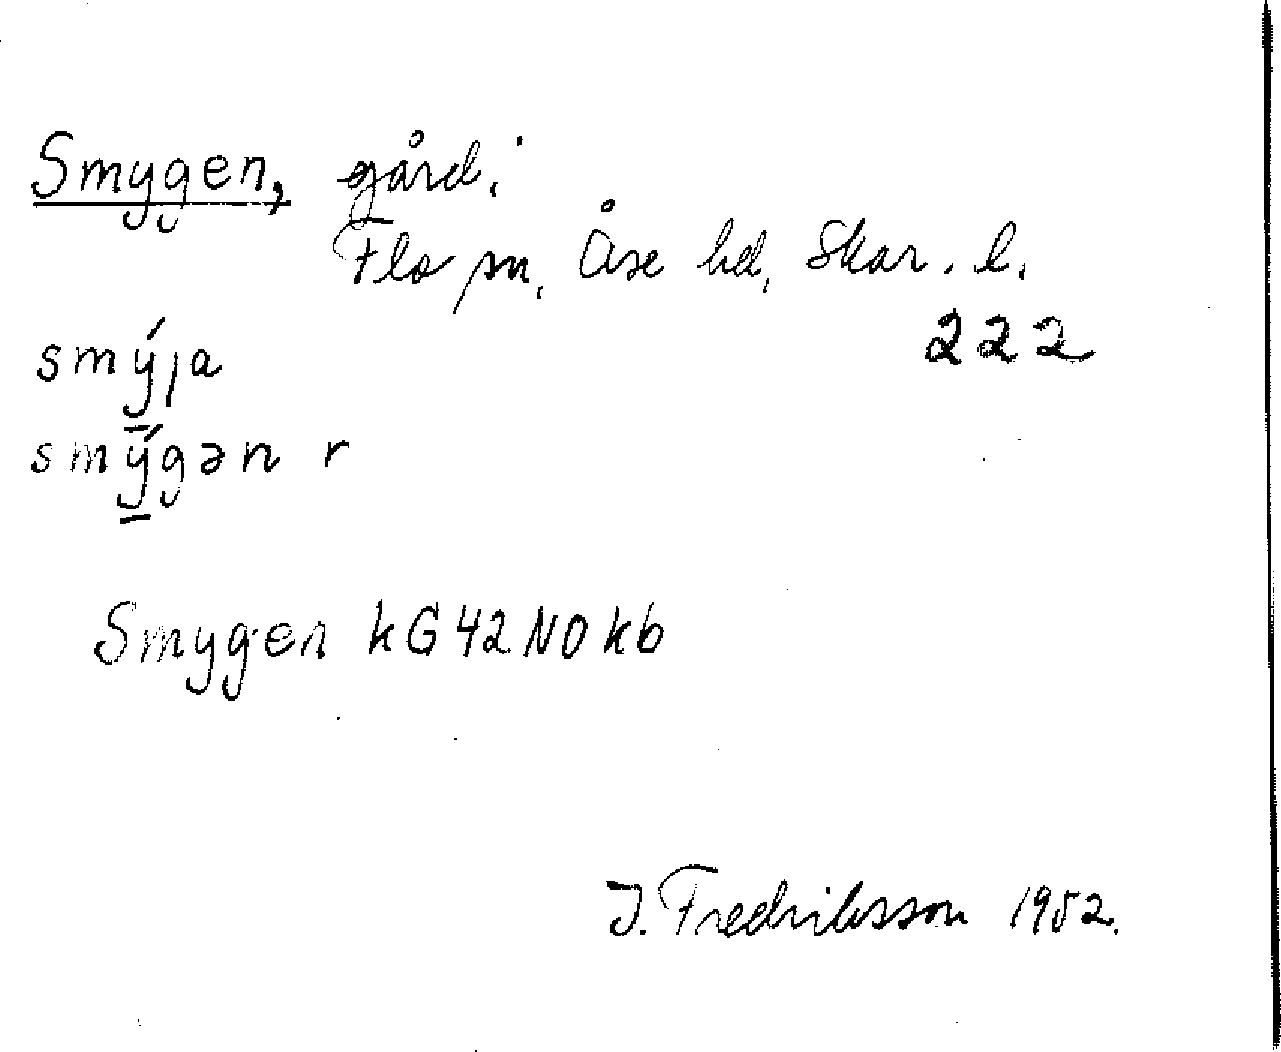 Smygen, gård.
Flo sn, Åse hd, Skar. l.
222
smý̱ja
smý̱gən r
Smygen kG42NOkb
I. Fredriksson 1952.